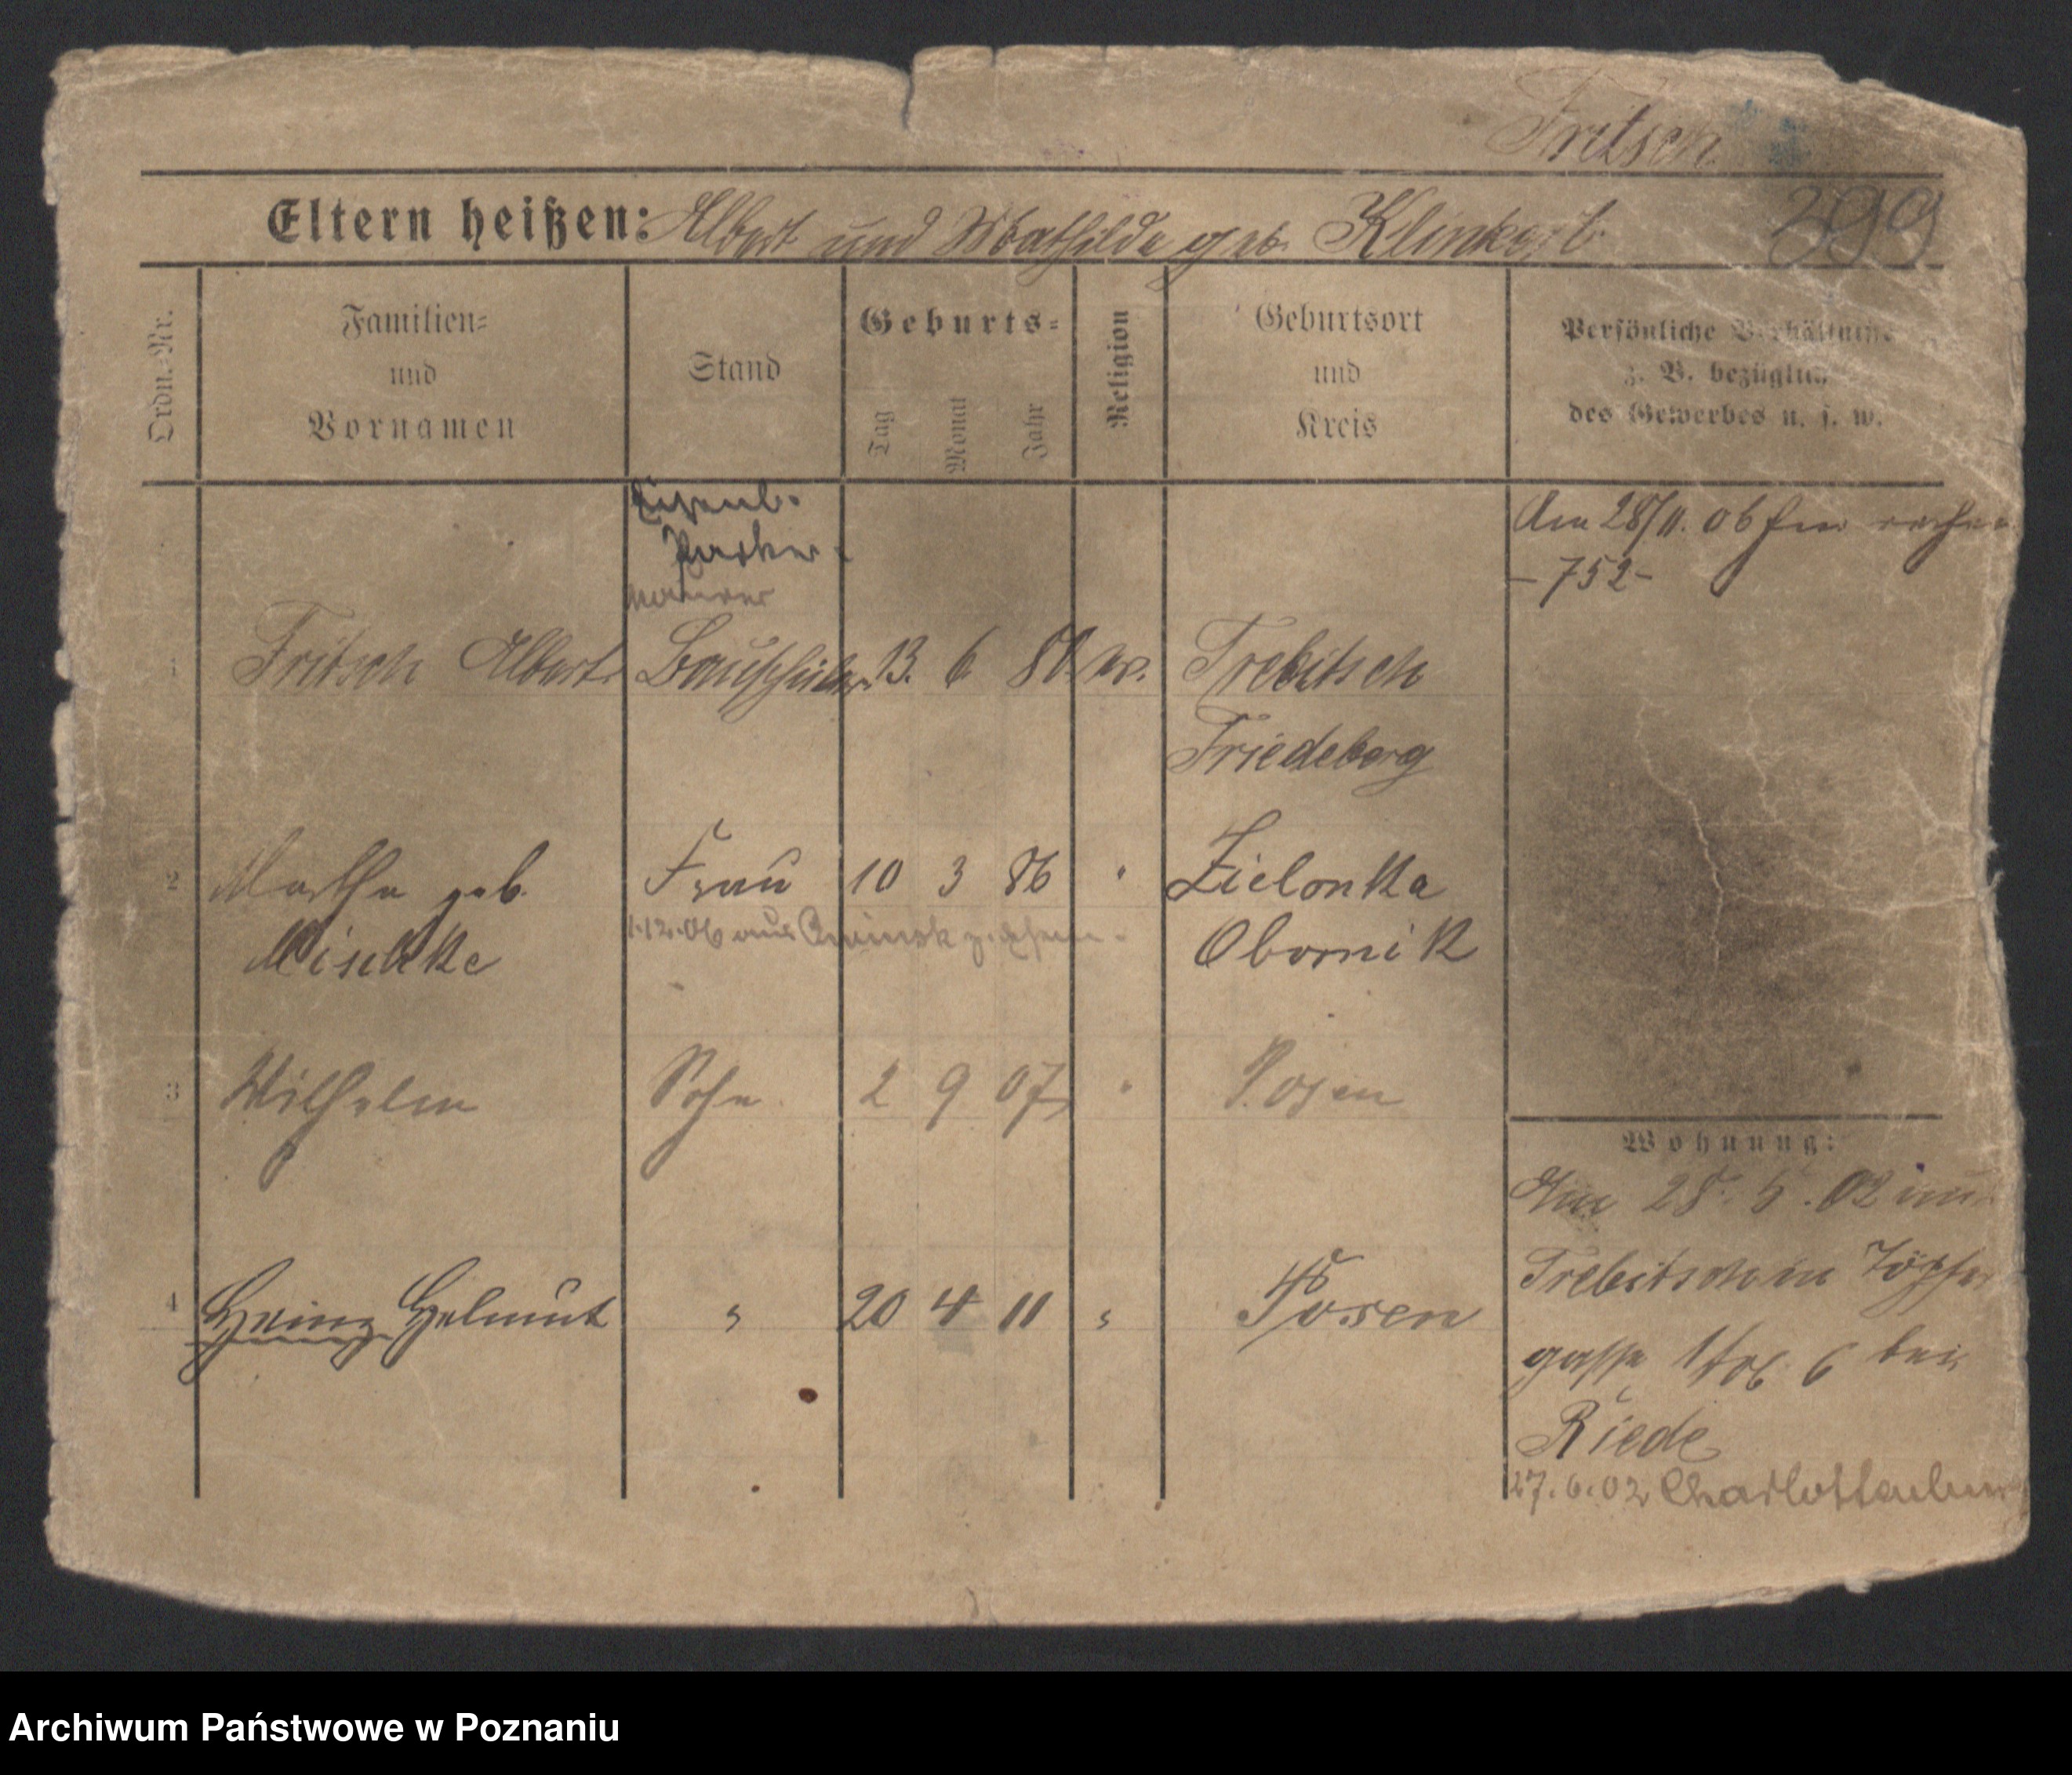 Fritsch
Eltern heißen: Albert und Mathilde geb. Klinkert 399
Ordn.-Nr.
Familien-
und
Vornamen
Stand
Geburts-
Tag
Monat
Jahr
Religion
Geburtsort
und
Kreis
Persönliche Verhältnisse
z. B. bezüglich
des Gewerbes u. s. w.
Eisenb.
Am 28/11. 06
-752-
Maurer
1 Fritsch Albert Bauschüler 13. 6 80. ev. Trebitsch
Friedeberg
2 Martha geb. Frau 10 3 86 " Zielonka
1.12.06 aus
Mischke Obornik
3 Wilhelm Sohn 2 9 07 " Posen
Wohnung:
Am 28. 5. 02 aus
Trebitsch in Töpfer
4 Heinz Helmut " 20 4 11 " Posen
gasse No 6 bei
Riede
27.6.02 Charlottenburg
Archiwum Państwowe w Poznaniu